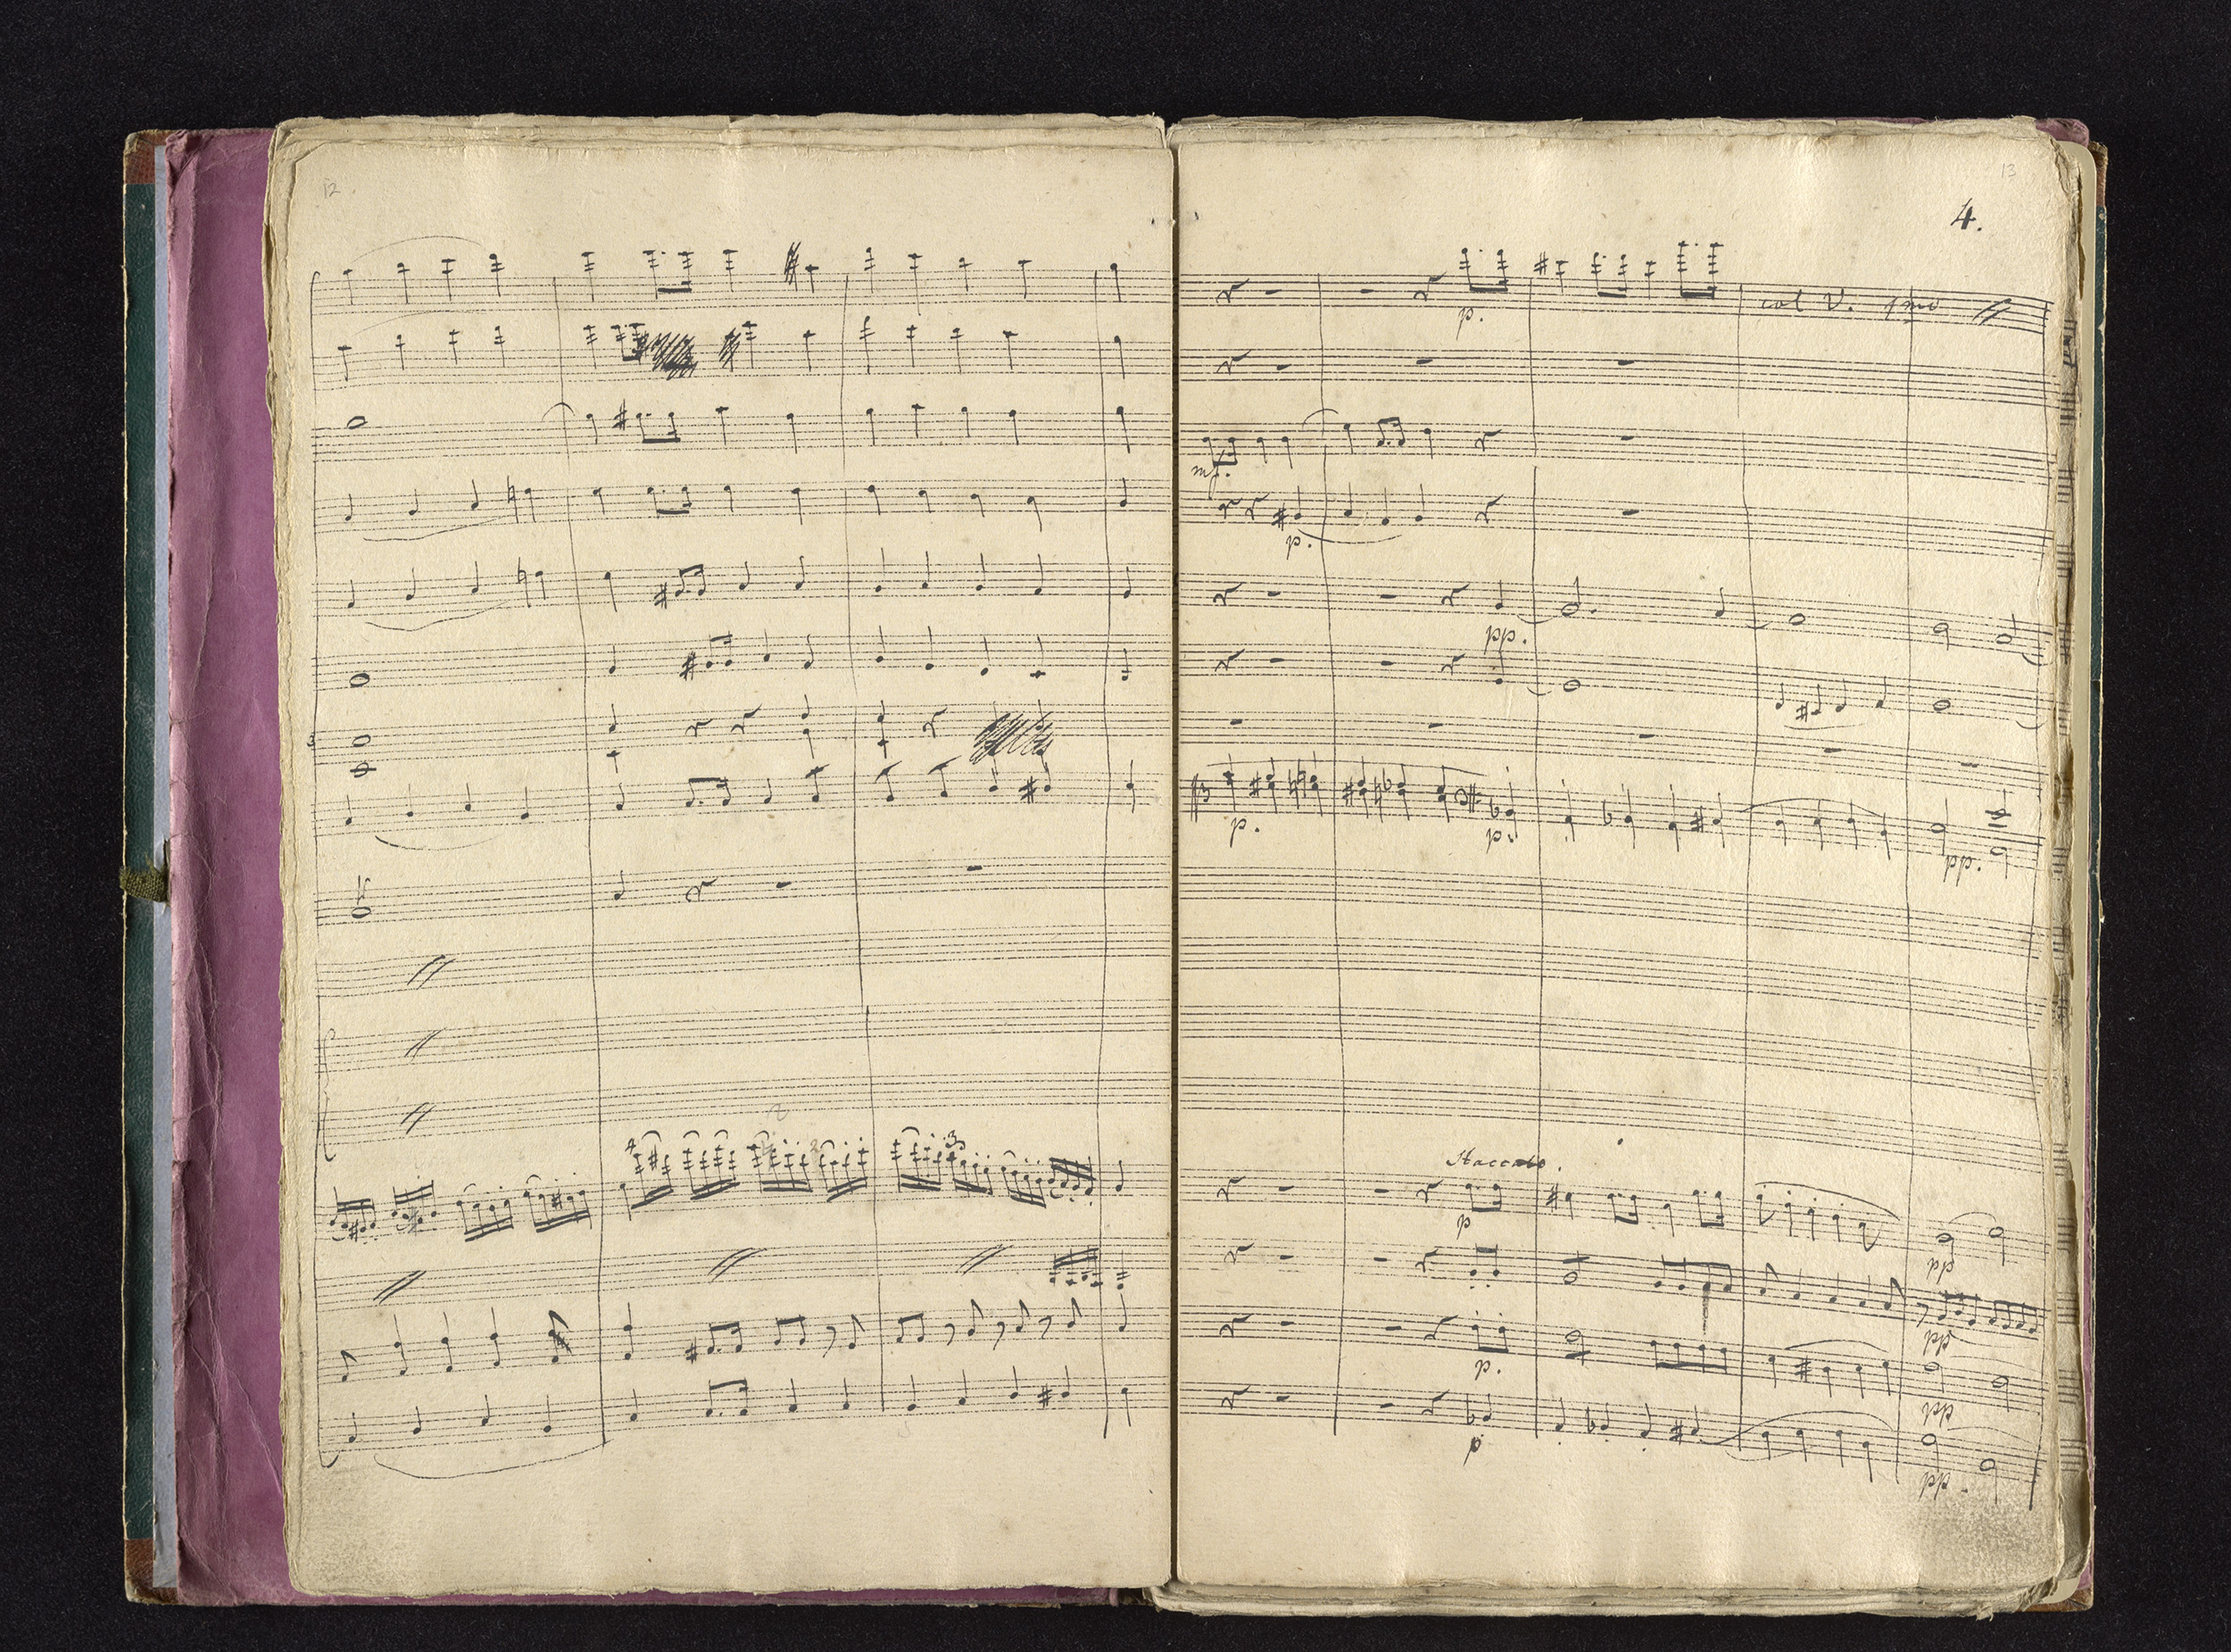 12
13
4.
p.
col V. 1mo
mf.
p.
pp.
p.
p.
pp.
4
3
Staccato.
p
pp
pp
p.
pp
p
pp.